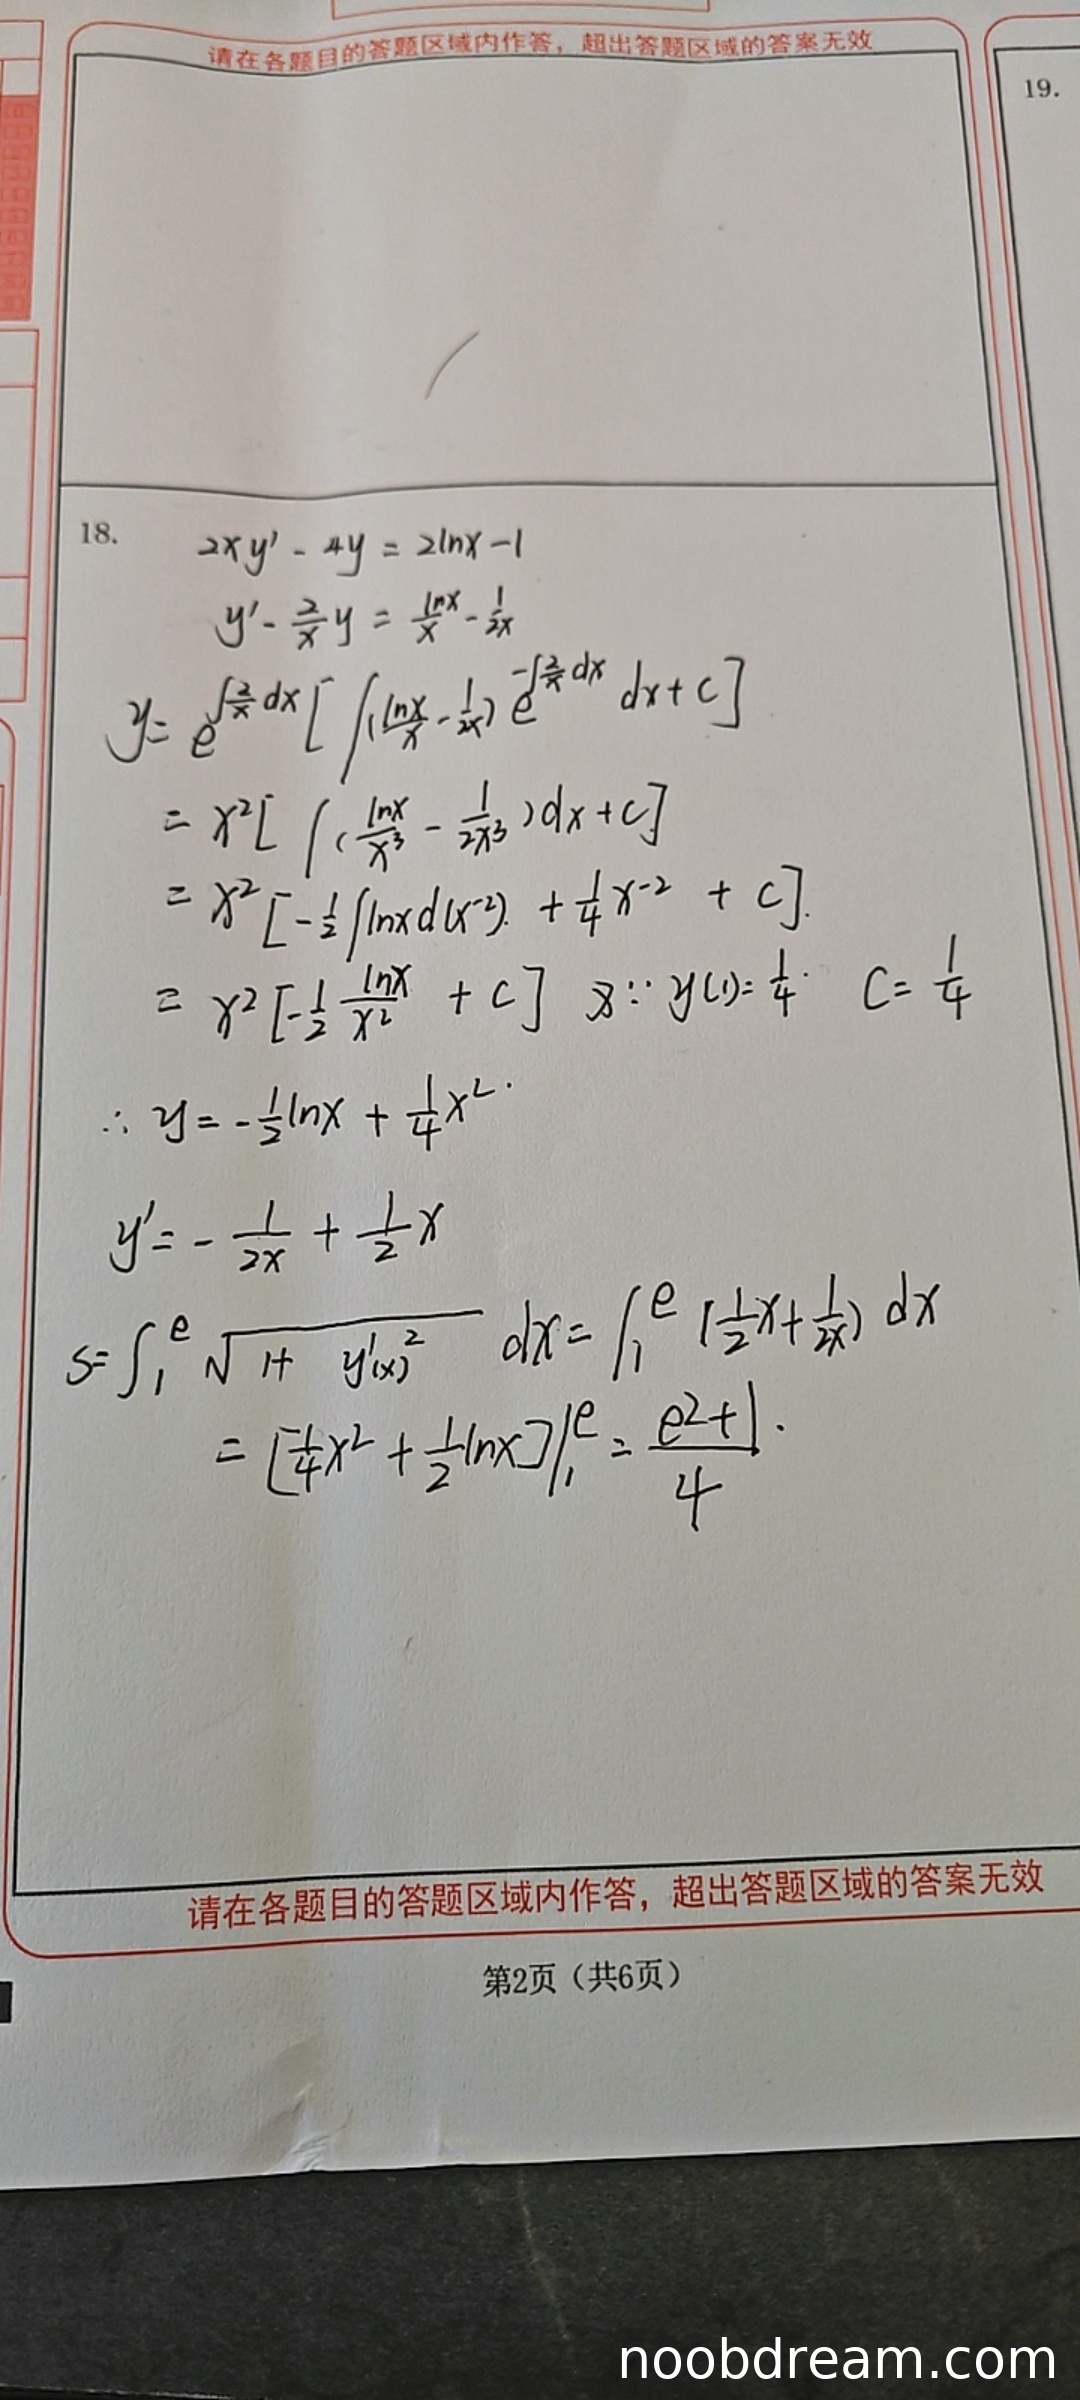 请在各题目的答题区域内作答，超出答题区域的答案无效
19.
18.
2xy' - 4y = 2lnx - 1
y' - 2/x y = lnx/x - 1/2x
y = e^{∫2/x dx} [ ∫(lnx/x - 1/2x) e^{-∫2/x dx} dx + C ]
= x² [ ∫( lnx/x³ - 1/2x³ ) dx + C ]
= x² [ -1/2 ∫lnx d(x⁻²) + 1/4 x⁻² + C ].
= x² [ -1/2 lnx/x² + C ] 又∵ y(1) = 1/4. C = 1/4
∴ y = -1/2 lnx + 1/4 x².
y' = - 1/2x + 1/2 x
S = ∫₁^e √(1 + y'(x)²) dx = ∫₁^e (1/2 x + 1/2x) dx
= [1/4 x² + 1/2 lnx] |₁^e = e²+1/4.
请在各题目的答题区域内作答，超出答题区域的答案无效
第2页（共6页）
noobdream.com